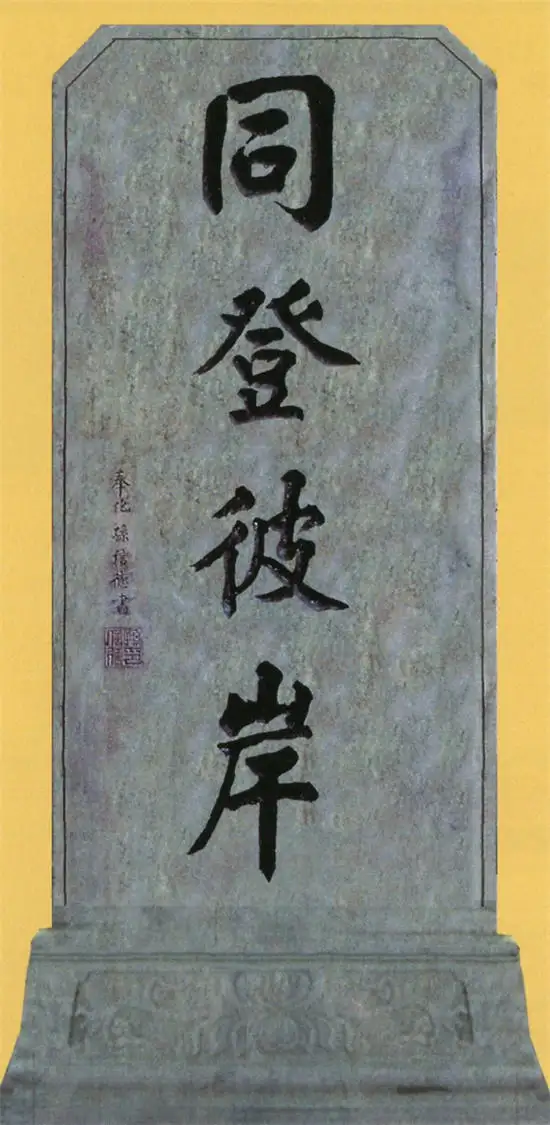 同登彼岸
奉化孫信德書